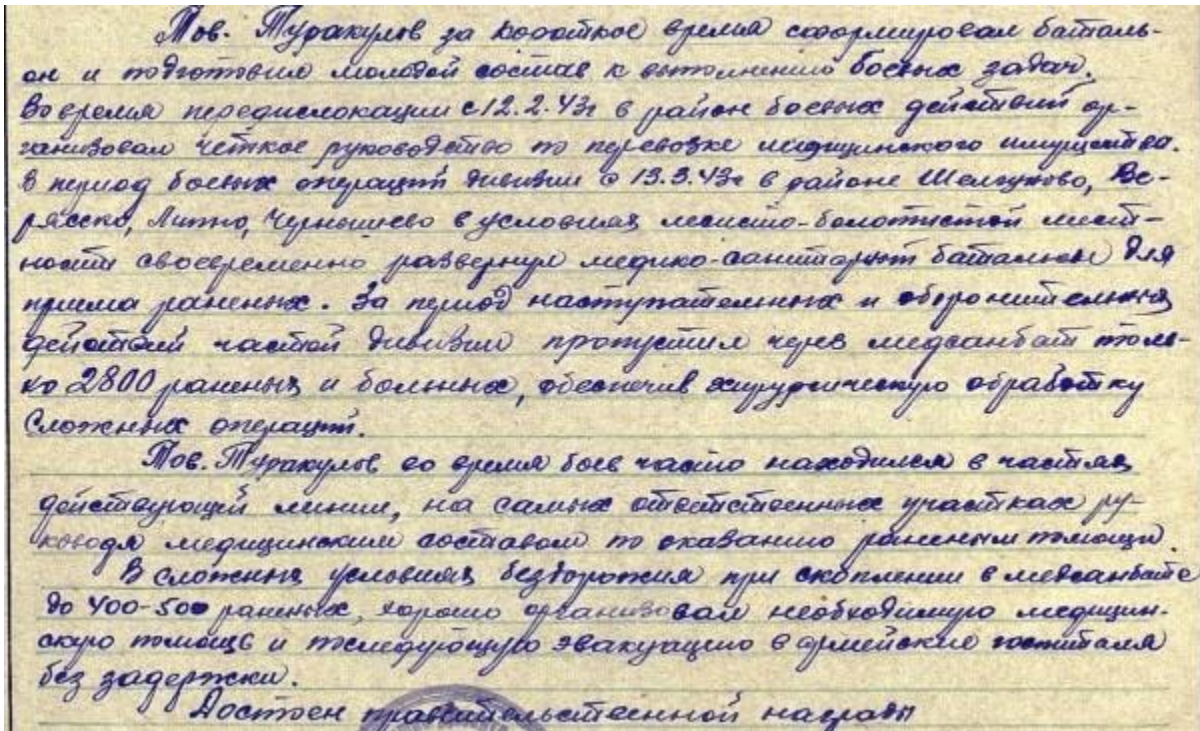 Тов. Туракулов за короткое время сформировал баталь-
он и подготовил молодой состав к выполнению боевых задач.
Во время передислокации с 12.2.43г в район боевых действий ор-
ганизовал чёткое руководство по перевозке медицинского имущества.
В период боевых операций дивизии с 13.3.43г в районе Шелгуново, Ве-
рясско, Липно, Чернышево в условиях лесисто-болотистой мест-
ности своевременно развернул медико-санитарный баталион для
приема раненых. За период наступательных и оборонительных
действий частей дивизии пропустил через медсанбат толь-
ко 2800 раненых и больных, обеспечив хирургическую обработку
сложных операций.
Тов. Туракулов во время боев часто находился в частях
действующей линии, на самых ответственных участках ру-
ководя медицинским составом по оказанию раненым помощи.
В сложных условиях бездорожия при скоплении в медсанбате
до 400-500 раненых, хорошо организовал необходимую медицин-
скую помощь и последующую эвакуацию в армейские госпиталя
без задержки.
Достоен правительственной награды